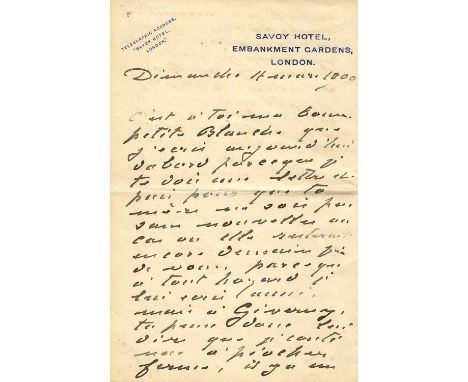 TELEGRAPHIC ADDRESS,
"SAVOY HOTEL,
LONDON."
SAVOY HOTEL,
EMBANKMENT GARDENS,
LONDON.
Dimanche 4 mars 1900
C'est à toi ma bonne
petite Blanche que
j'écris aujourd'hui
d'abord parceque je
te dois une lettre et
puis pour que ta
mère ne soit pas
sans nouvelles au
cas où elle resterait
encore demain près
de vous, parceque
à tout hazard je
lui écris aussi
mais à Giverny,
tu peux donc lui
dire que je continue
à piocher
ferme, il y a un